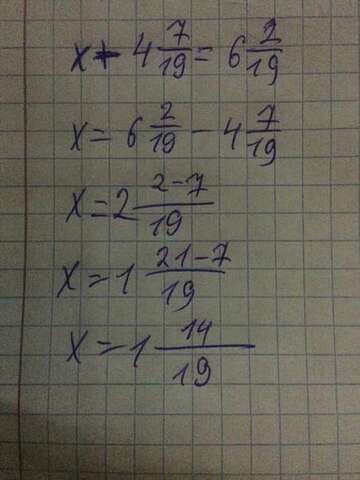 x + 4 7/19 = 6 2/19
x = 6 2/19 - 4 7/19
x = 2 2-7/19
x = 1 21-7/19
x = 1 14/19